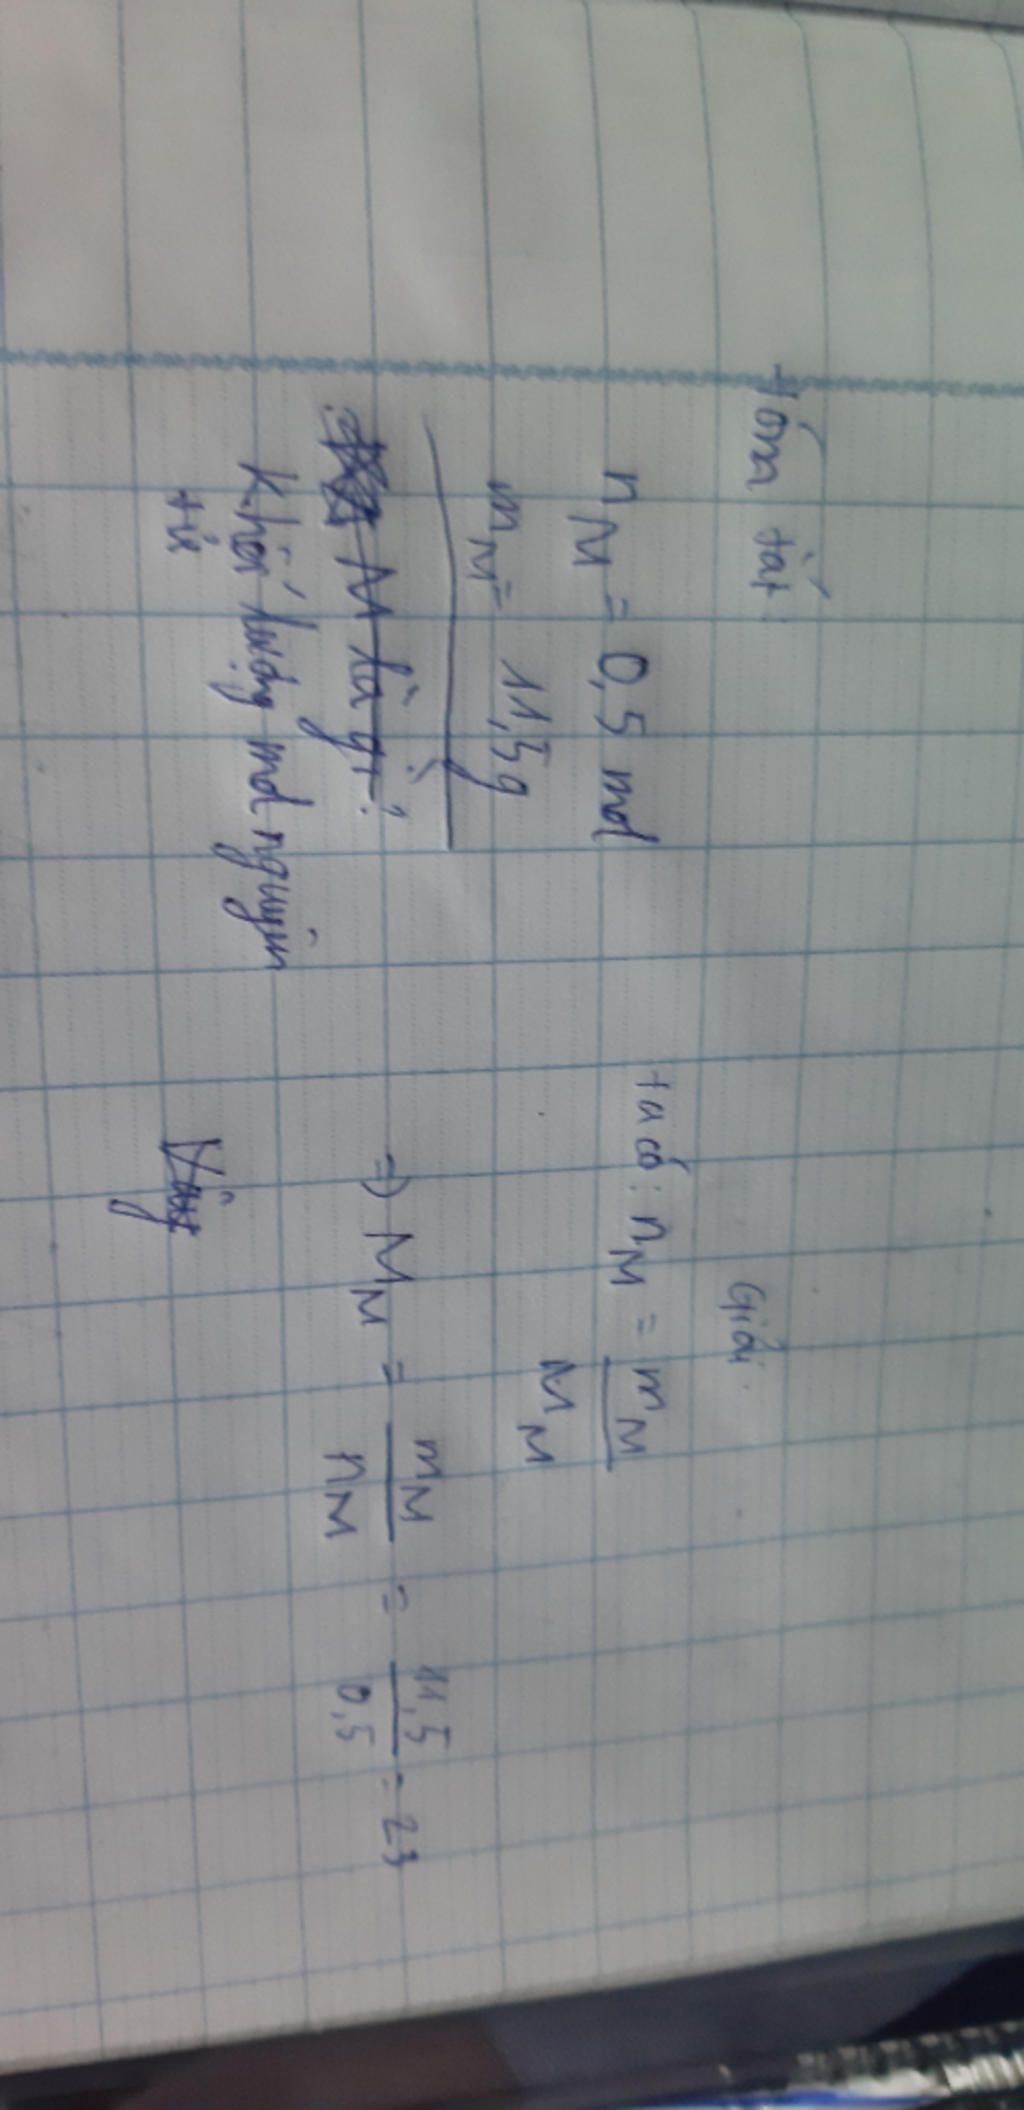 Tóm tắt:
nM = 0,5 mol
mM = 11,5g
M là gì?
Khối lượng mol nguyên
tử
Giải.
ta có: nM = mM / MM
=) MM = mM / nM = 11,5 / 0,5 = 23
Vậy